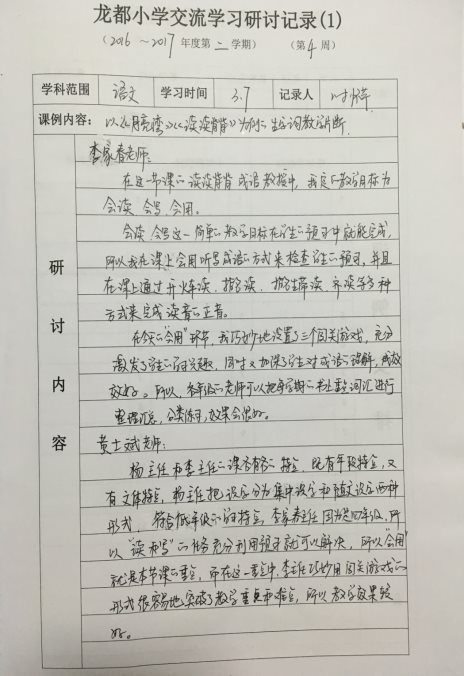 龙都小学交流学习研讨记录(1)
(2016～2017年度第二学期) (第4周)
学科范围 语文 学习时间 3.7 记录人
课例内容: 以《月亮湾》《读读背背》为例 生字词教学
研讨内容
李家春老师:
在这一节课 读读背背 成语教授中, 我定 教学目标为
会读 会写 会用。
会读 会写这一简单 教学目标在学生 预习中就能完成,
所以我在课上会用听写成语 方式来检查学生 预习, 并且
在课上通过开火车读、指名读、指名带读、齐读等多种
方式来完成读音 正音。
在今天 "会用"环节, 我巧妙地设置了三个闯关游戏, 充分
激发了学生 学习兴趣, 同时又加深了学生对成语 理解, 成效
较好。所以, 各年级 老师可以把每学期 书上重点词汇进行
整理汇总, 分类练习, 效果会很好。
黄士斌老师:
杨主任和李主任 课各有各 特点, 既有年段特点, 又
有文体特点, 杨主任把识字分为集中识字和随文识字两种
形式, 符合低年级 学习特点, 李家春主任因为是四年级, 所
以"读和写" 任务充分利用预习就可以解决, 所以"会用"
就是本节课 重点, 而在这一重点中, 李主任巧妙用闯关游戏
形式很容易地突破了教学重点和难点, 所以教学效果较
好。